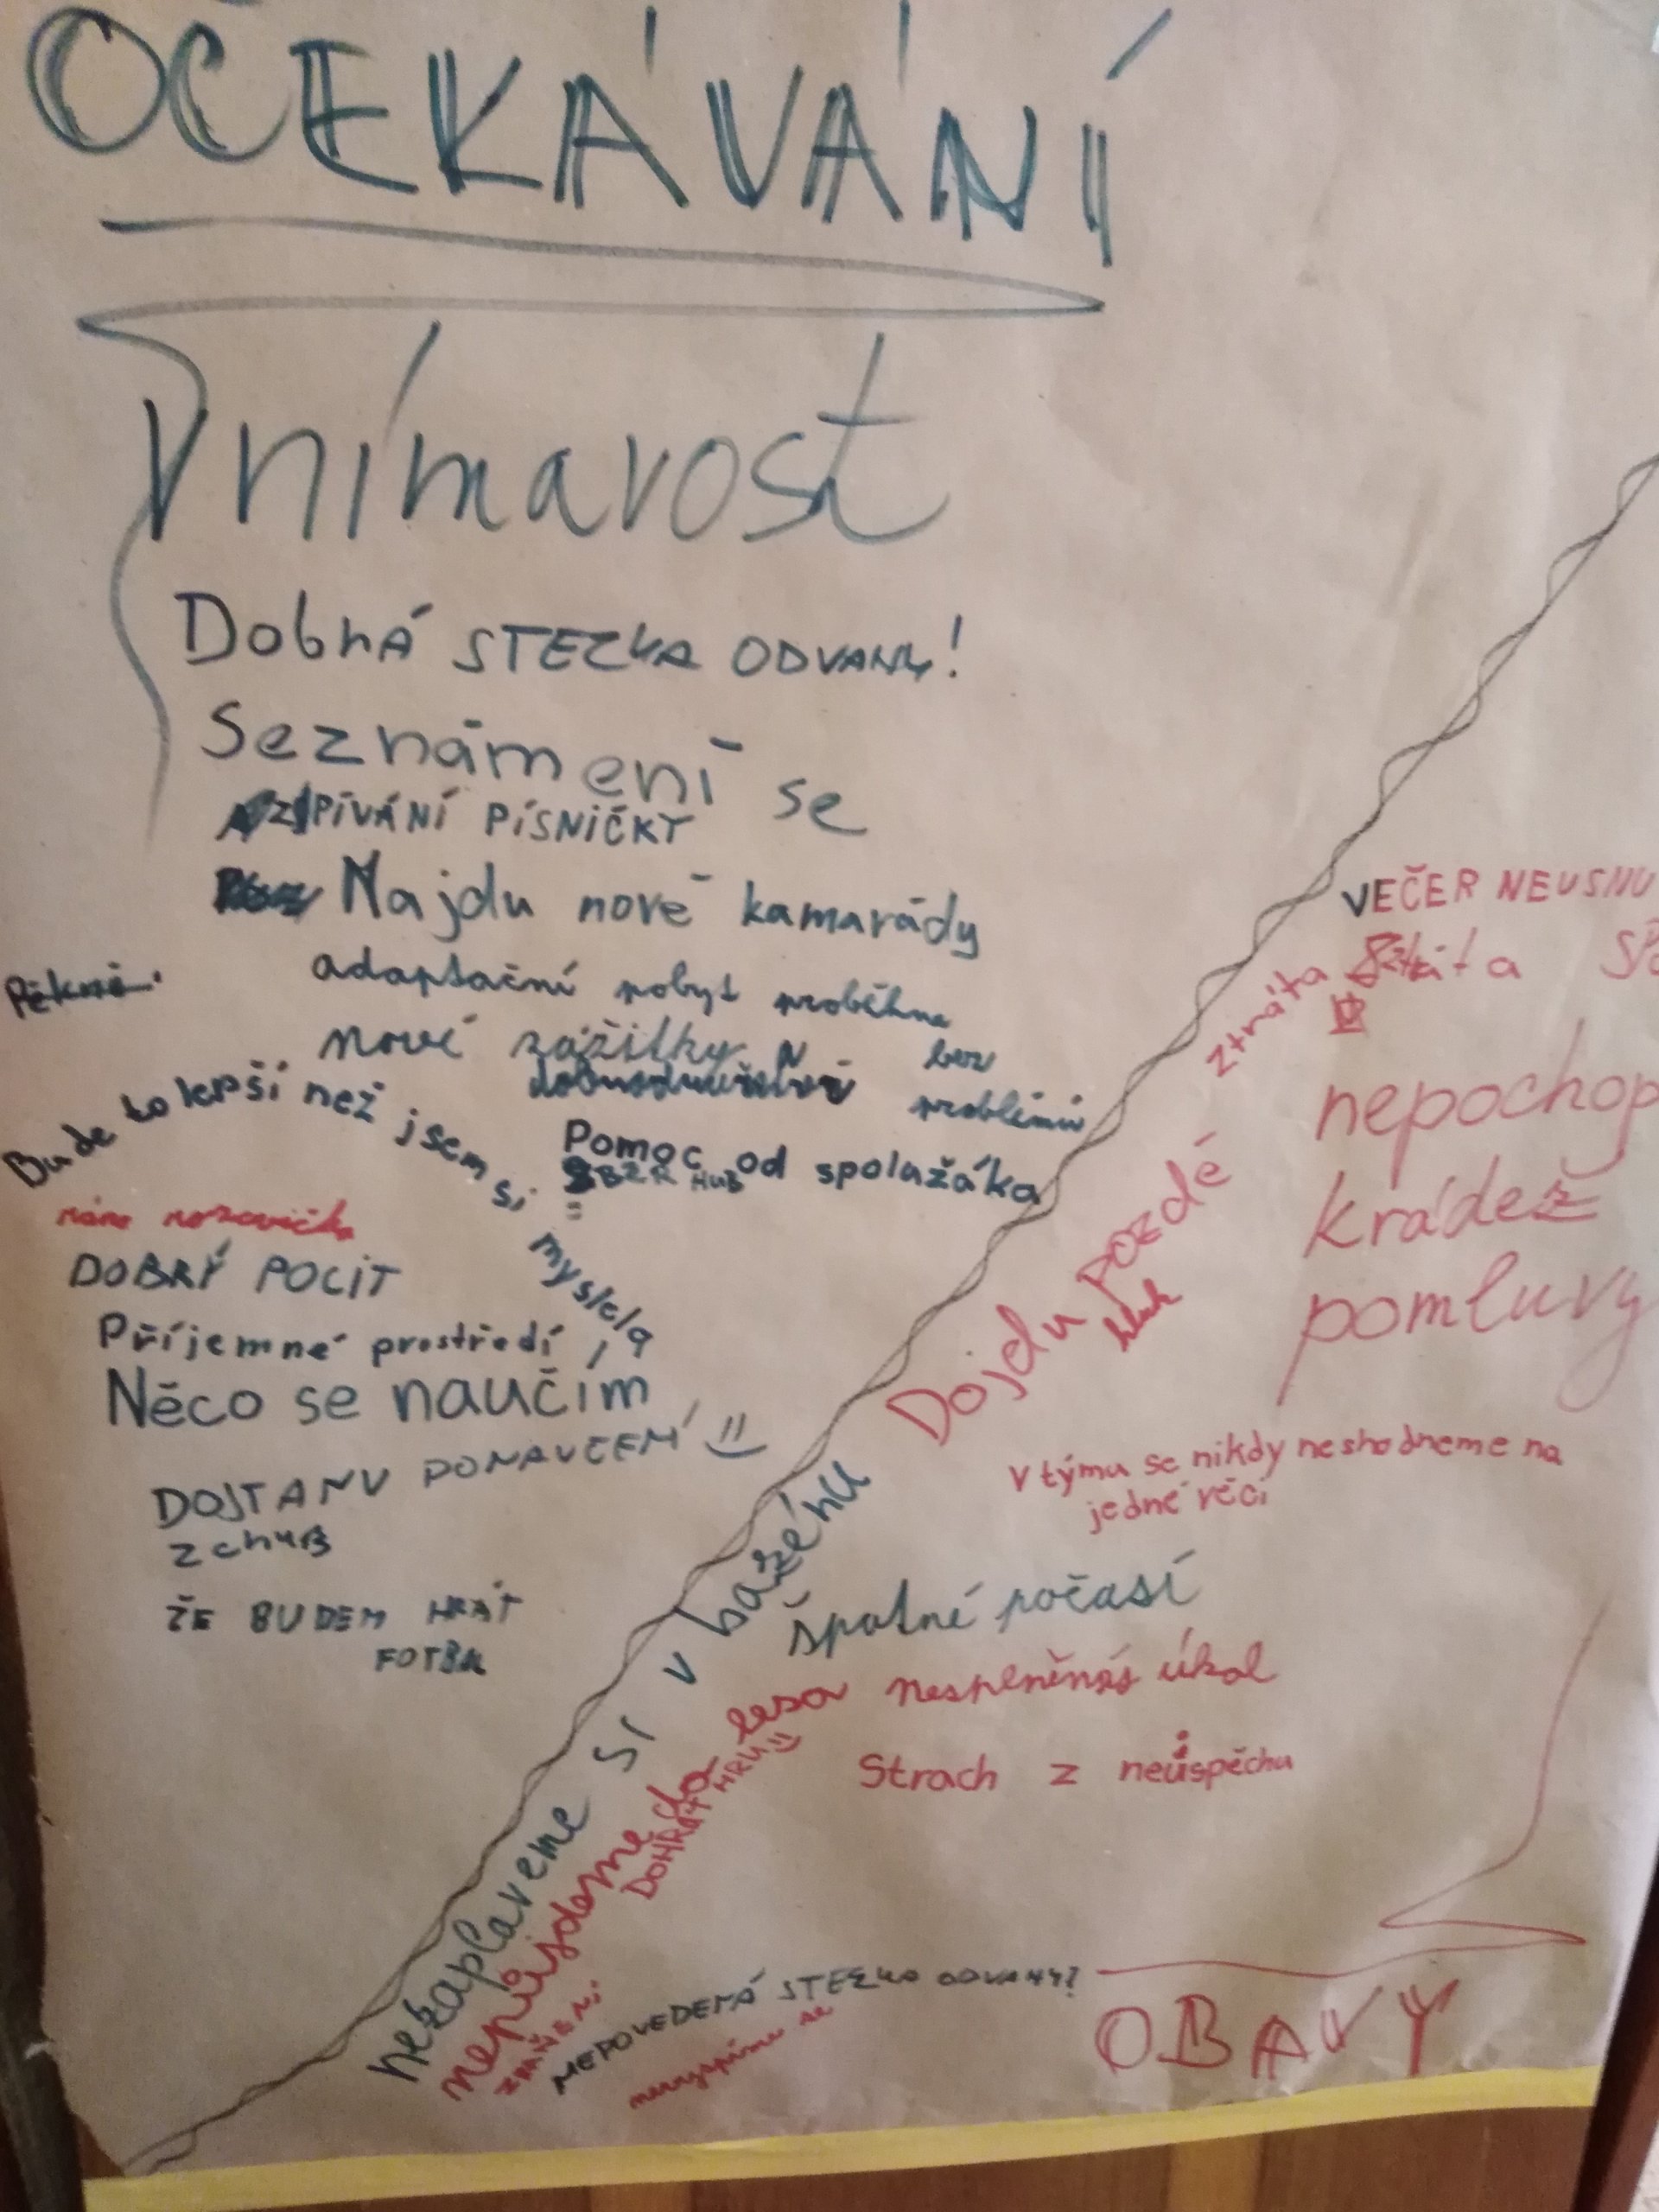 OČEKÁVÁNÍ
Vnímavost
DobrÁ STEZKA ODVAHY!
Seznámení se
ZPÍVÁNÍ PÍSNIČKY
Najdu nové kamarády
Pěkné
adaptační pobyt proběhne
bez
problémů
nové zážitky
Bude to lepší než jsem si myslela
Pomoc od spolužáka
DOBRÝ POCIT
Příjemné prostředí
Něco se naučím
DOSTANU PONAUČENÍ
Z CHYB
ŽE BUDEM HRÁT
FOTBAL
VEČER NEUSNU
ztráta
nepochop
krádež
pomluvy
Dojdu pozdě
hluk
V týmu se nikdy neshodneme na
jedné věci
nezaplaveme si v bazénu
špatné počasí
nepůjdeme do lesa
nesplněný úkol
DOHRÁT HRU
Strach z neúspěchu
ZRANĚNÍ
NEPOVEDENÁ STEZKA ODVAHY?
nevyspíme se
OBAVY